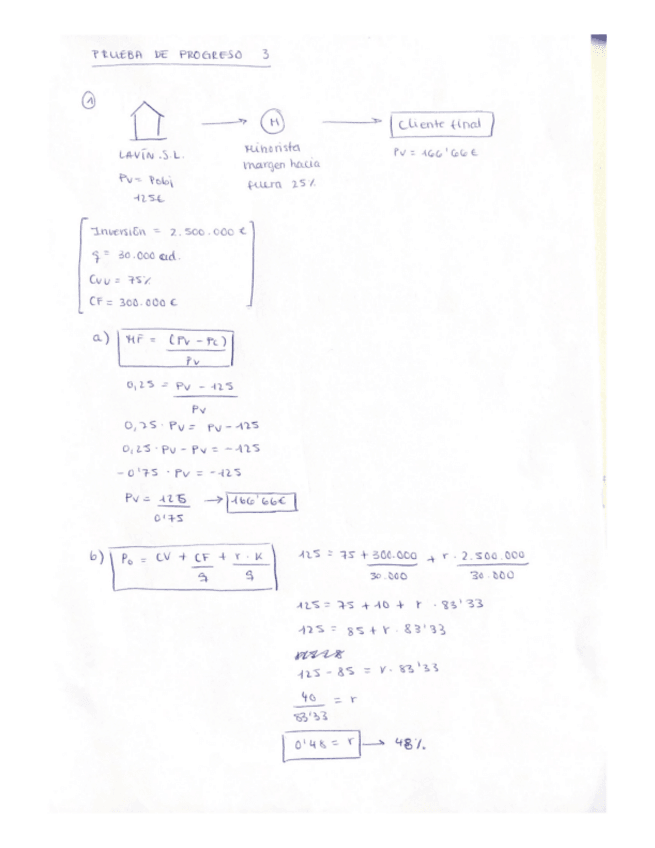 PRUEBA DE PROGRESO 3
1
LAVÍN.S.L.
PV = Pobj
125€
M
Minorista
margen hacia
fuera 25%
Cliente final
PV = 166'66€
Inversión = 2.500.000 €
q = 30.000 ud.
CVU = 75%
CF = 300.000 €
a) MF = (PV - PC) / PV
0,25 = PV - 125 / PV
0,25 · PV = PV - 125
0,25 · PV - PV = -125
-0'75 · PV = -125
PV = 125 / 0'75 → 166'66€
b) P₀ = CV + CF / q + r · K / q
125 = 75 + 300.000 / 30.000 + r · 2.500.000 / 30.000
125 = 75 + 10 + r · 83'33
125 = 85 + r · 83'33
125 - 85 = r · 83'33
40 / 83'33 = r
0'48 = r → 48%